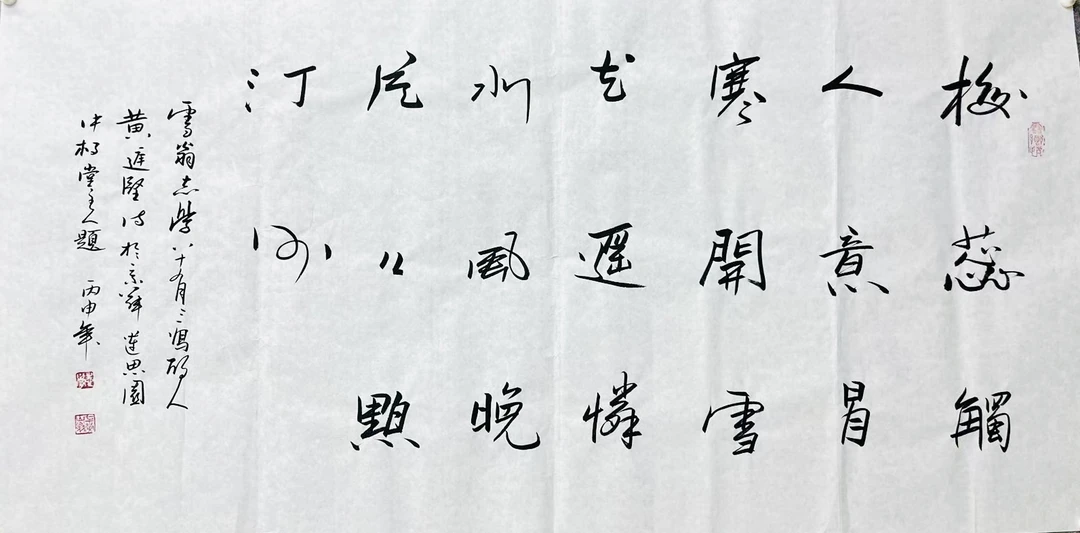 梅蕊觸
人意冒
寒開雪
花遥憐
水風晚
片々點
汀沙
雪翁志學八十有三
黄庭堅诗於京華思園
堂主人題 丙申年